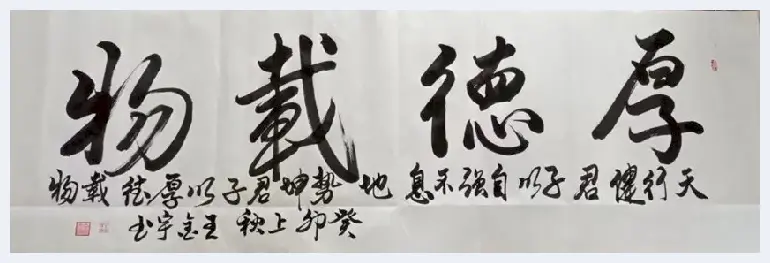 厚德載物
天行健君子以自强不息地势坤君子以厚德載物
癸卯上秋王金宇书